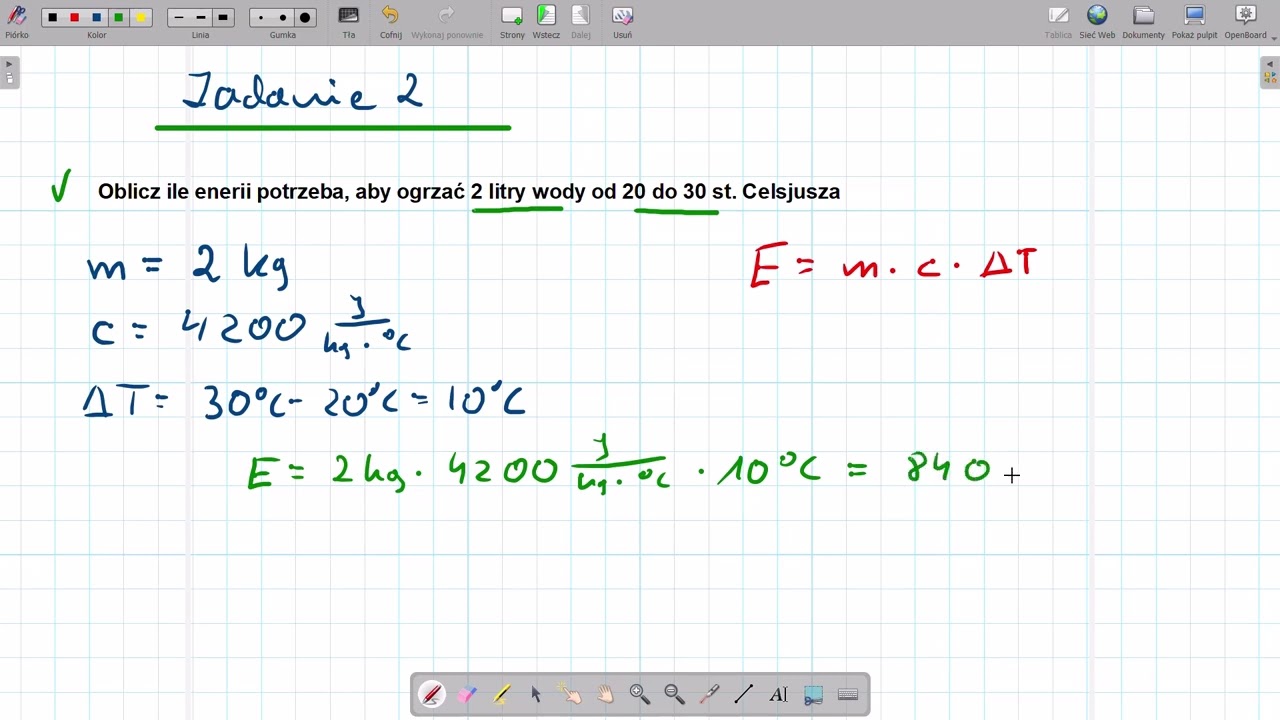 Pióro Kolor Linia Gumka Tła Cofnij Wykonaj ponownie Strony Wstecz Dalej Usuń Tablica Sieć Web Dokumenty Pokaż pulpit OpenBoard
Zadanie 2
Oblicz ile enerii potrzeba, aby ogrzać 2 litry wody od 20 do 30 st. Celsjusza
m = 2 kg
E = m · c · ΔT
c = 4200 J/kg·°C
ΔT = 30°C - 20°C = 10°C
E = 2 kg · 4200 J/kg·°C · 10°C = 840
AI